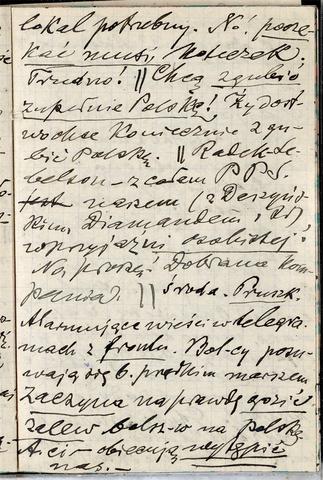 lokal potrzebny. No! pocze-
kać musi Koteczek,
Trudno! || Chcą zgubić
zupełnie Polskę! Żydost-
wo chce koniecznie zgu-
bić Polskę. || Radek-So-
belson – z całem P.P.S.
razem (z Daszyńs-
kim, Diamandem i
w przyjaźni osobistej!
No, proszę! Dobrana kom-
pania). || Środa. Pruszk.
Alarmujące wieści w telegra-
mach z frontu. Bol-cy posu-
wają się b. prędkim marszem
Zaczyna na prawdę grozić
zalew bolsz-w na Polskę
A ci – obiecują
nas. –